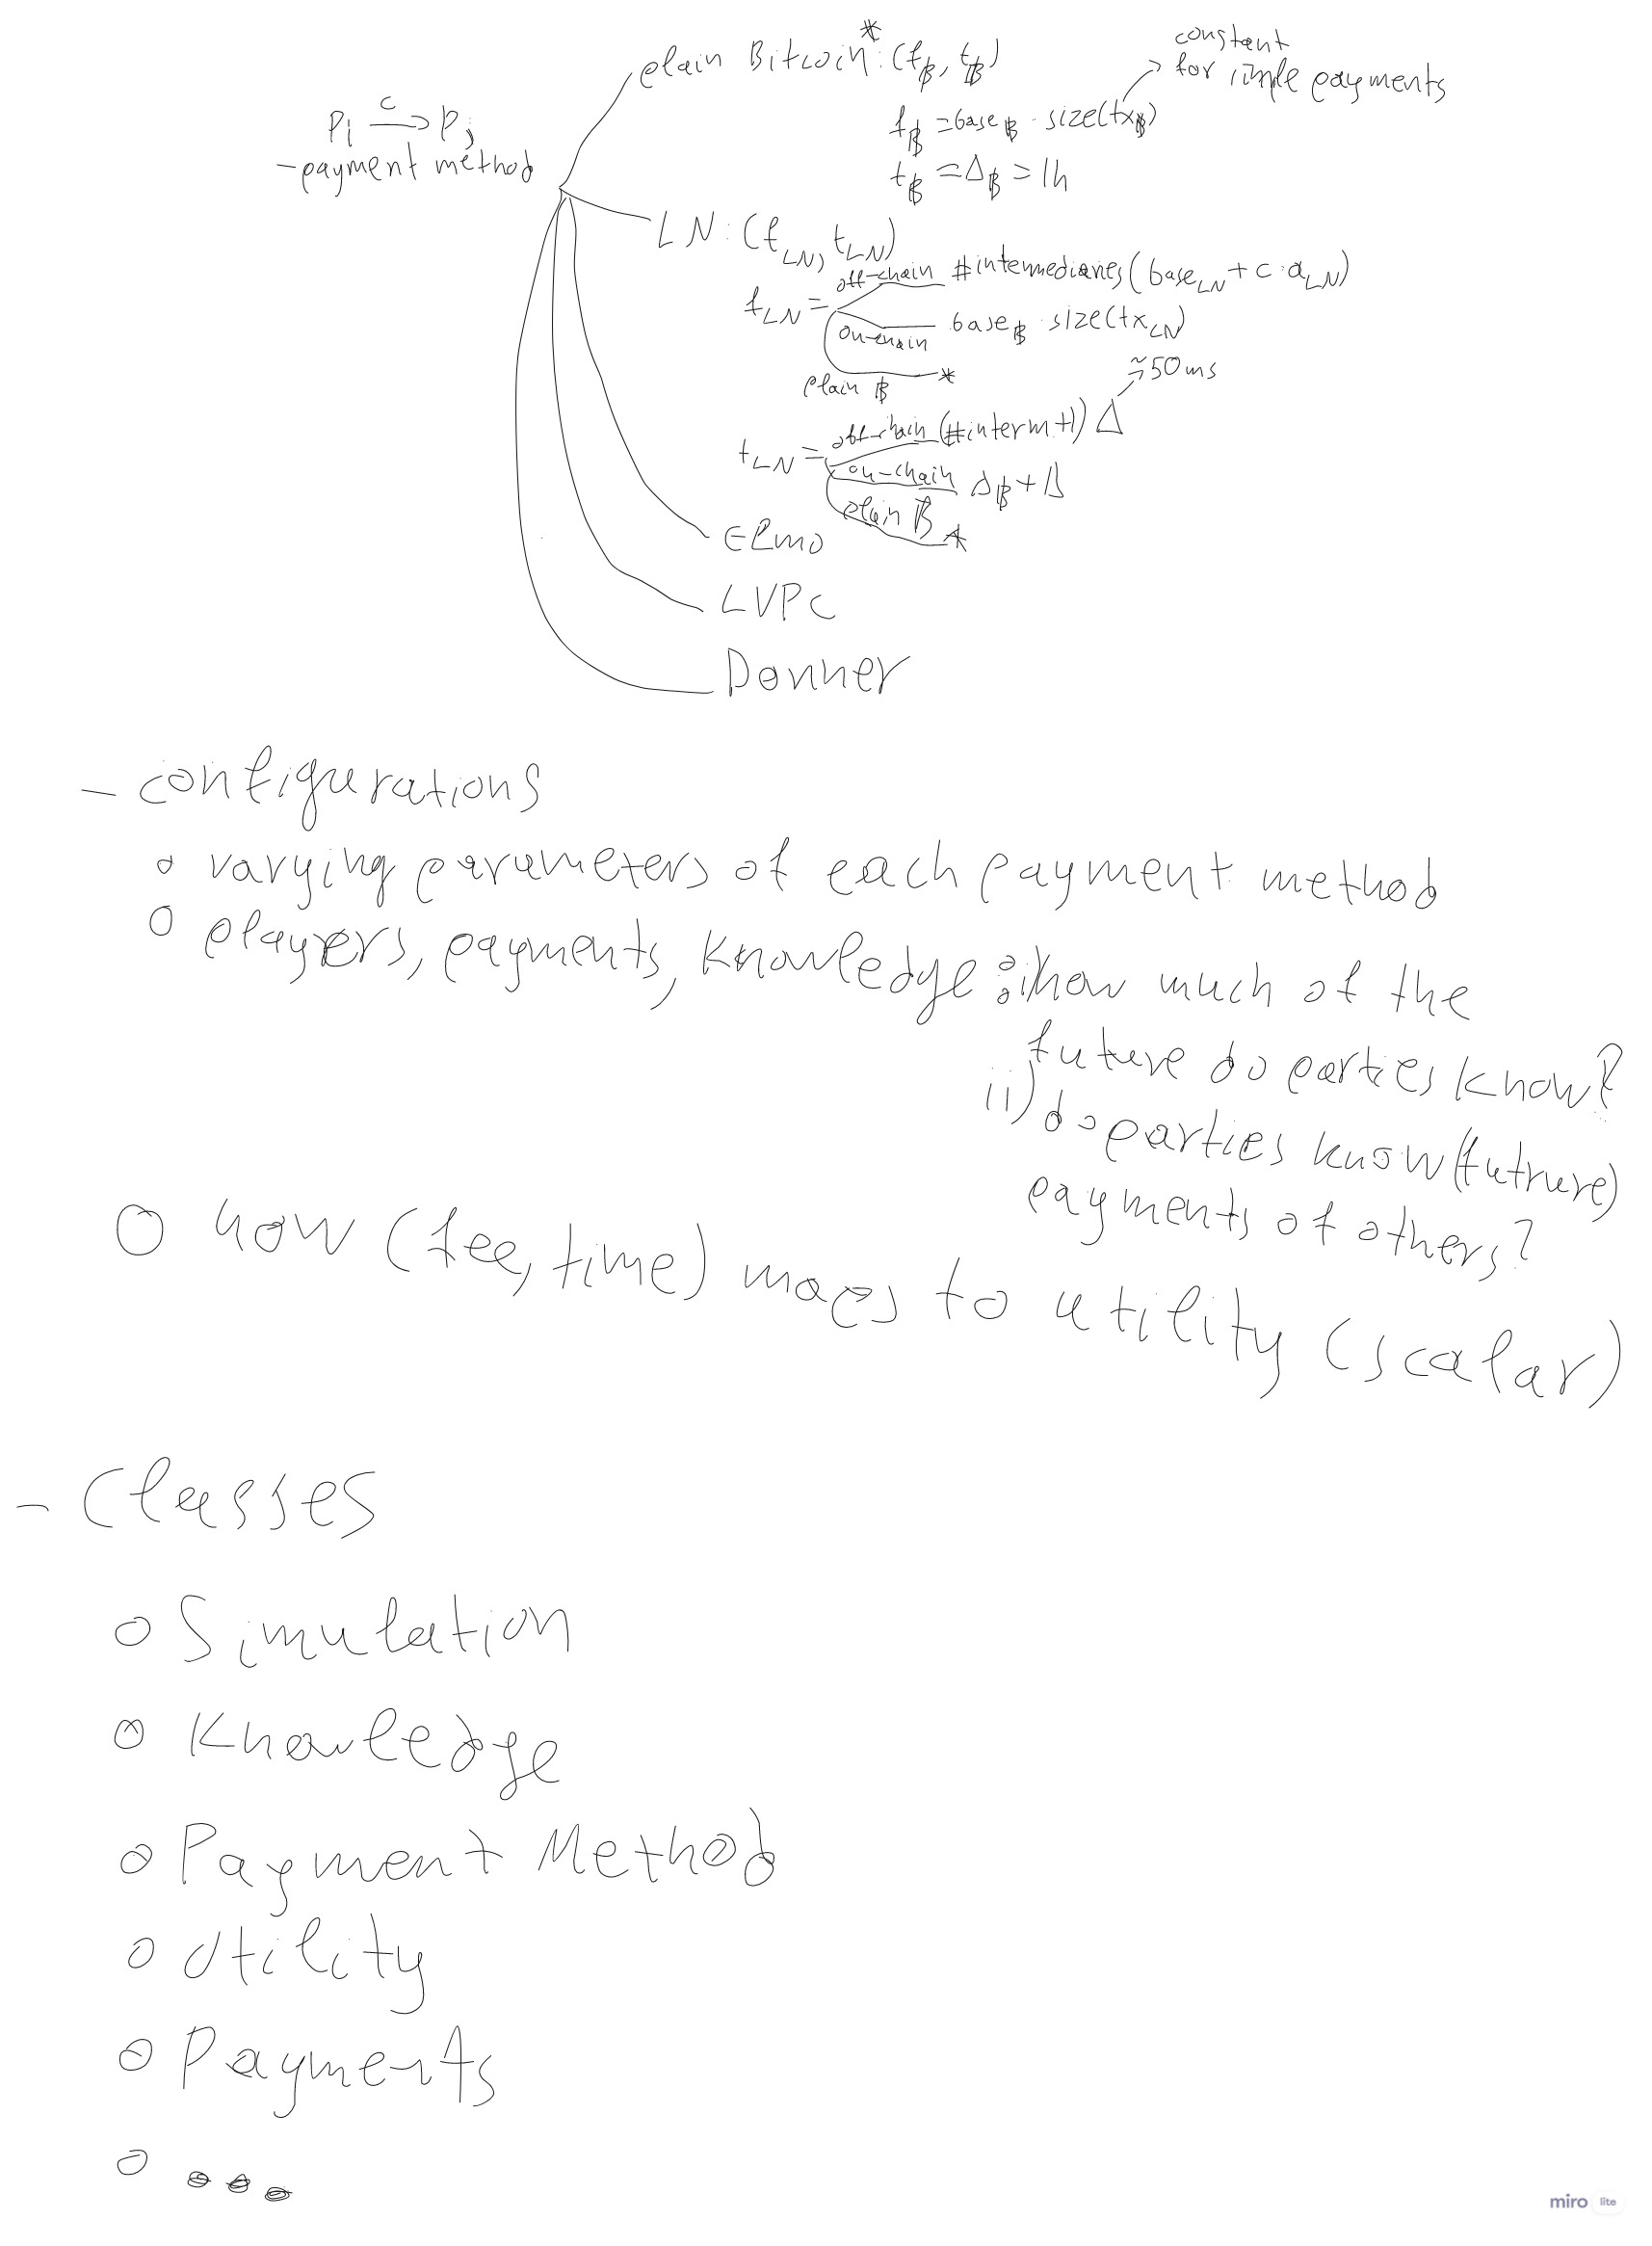 constant
for simple payments
plain Bitcoin*: (f₿, t₿)
Pi –c→ Pj
- payment method
f₿ = base₿ · size(tx₿)
t₿ = Δ₿ = 1h
LN: (f_LN, t_LN)
f_LN = off-chain #intermediaries (base_LN + c · a_LN)
on-chain base₿ · size(tx_LN)
plain ₿ *
≈50ms
t_LN = off-chain (#interm+1) Δ
on-chain Δ₿ + Δ
plain ₿ *
Elmo
LVPC
Donner
- configurations
o varying parameters of each payment method
o players, payments, knowledge: i) how much of the
future do parties know?
ii) do parties know (futrure)
payments of others?
o how (fee, time) maps to utility (scalar)
- Classes
o Simulation
o Knowledge
o Payment Method
o Utility
o Payments
o ...
miro lite